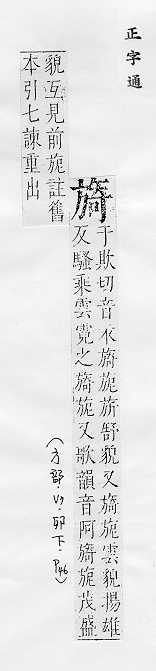 正字通
旖
于欺切音衣旖旎旂舒貌又旖旎雲貌揚雄
反騷乘雲霓之旖旎又歌韻音阿旖旎茂盛
貌互見前旎註舊
本引七諫重出
(方部.V9.卯下.P46)